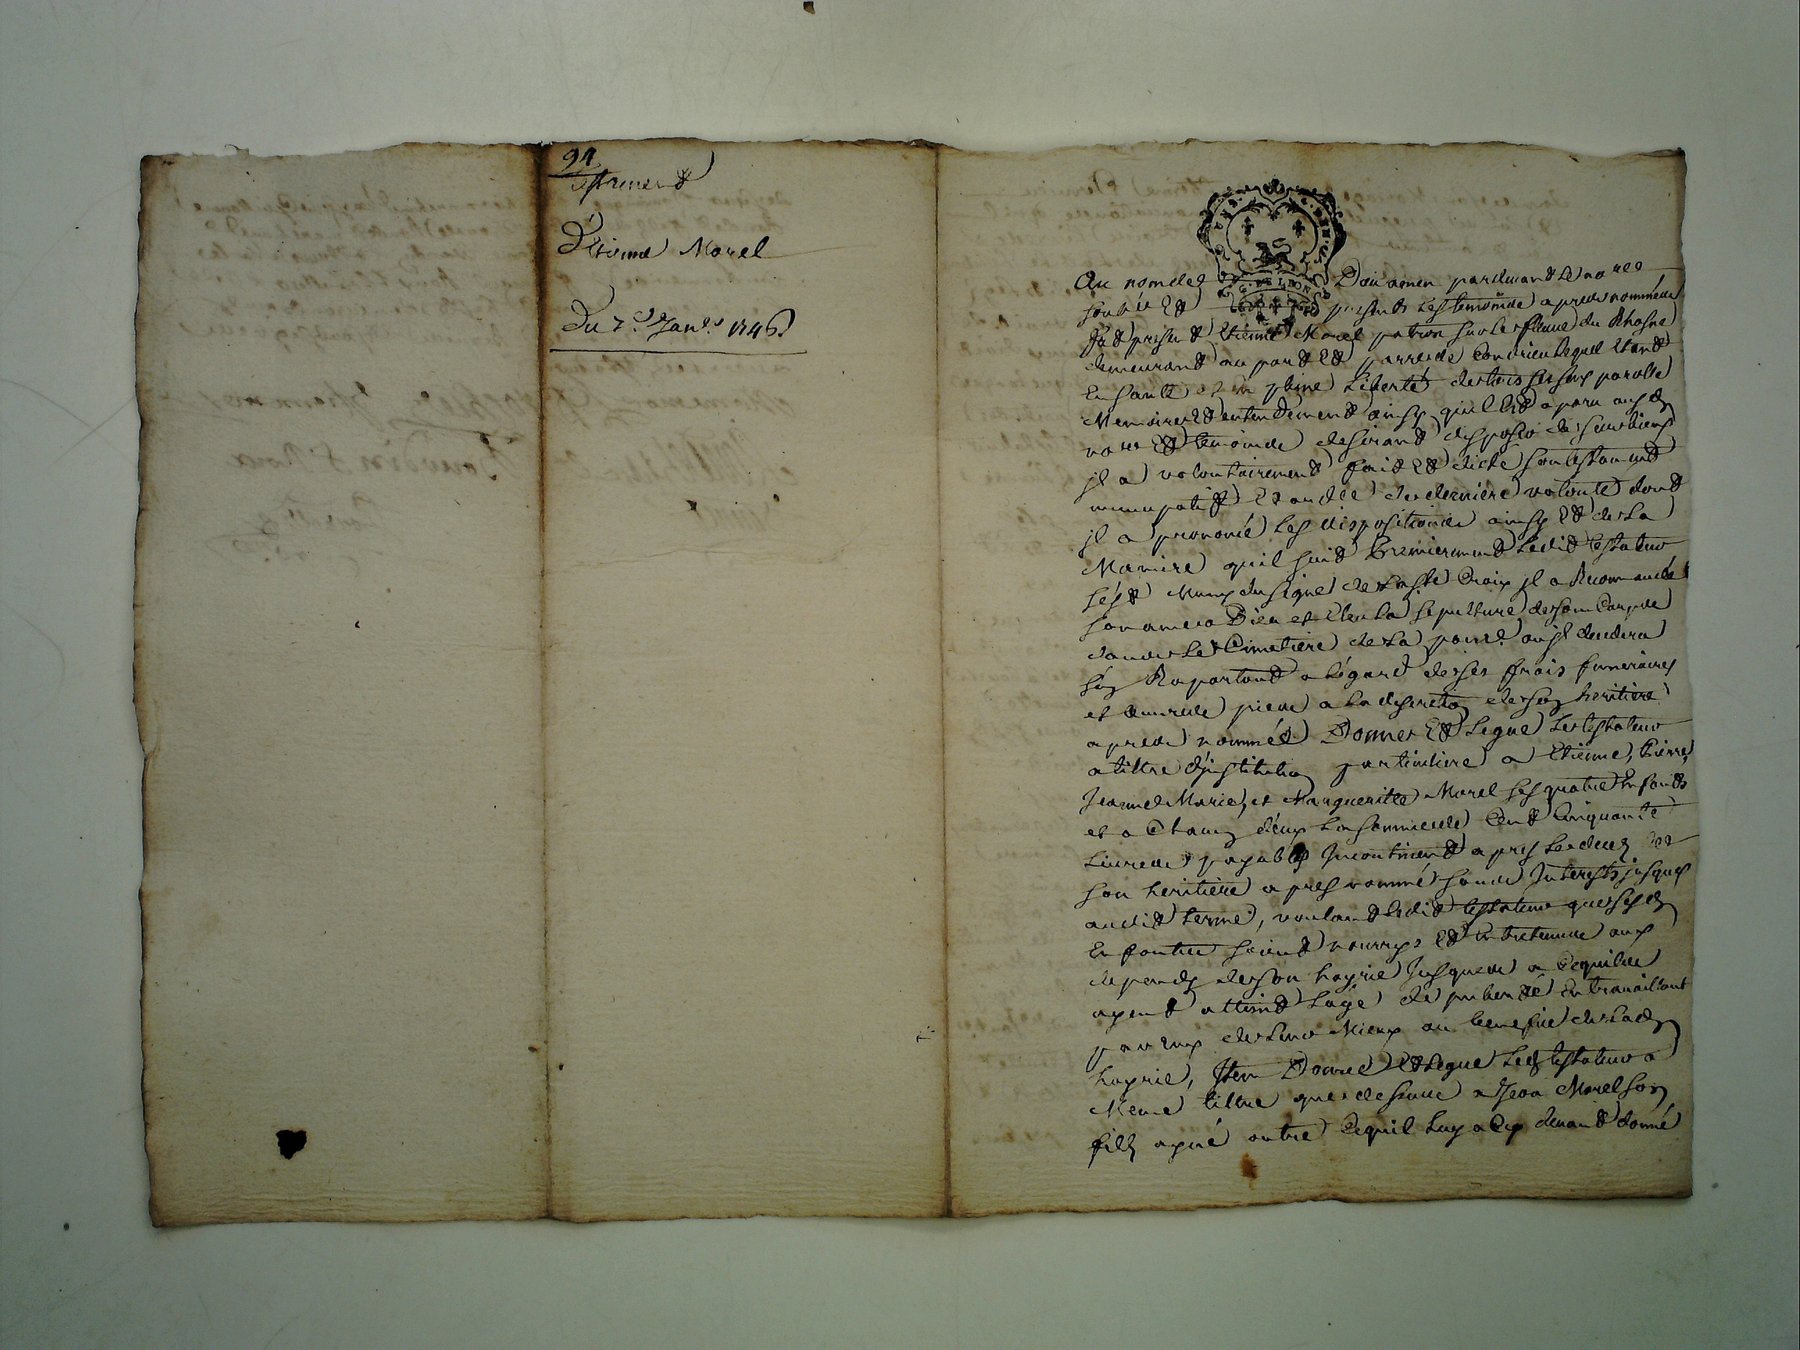 94
Testament
D'Etienne Morel
Du 7e Janer 1746
GEN. DE LION
Au nom de Dieu amen pardevant le nore
soubné et present les temoins apres nommés
fut present Etienne Morel patron sur le fleuve du Rhosne
demeurant au port et parroisse de Condrieu lequel etant
En santé et en pleine liberté de tous ses sens parolle
Memoire et entendement ainsy quil est aparu aux d
nore et temoins desirant disposer de ses biens
il a volontairement fait et dicté son testament
nuncupatif et ordce de derniere volonté dont
il a prononcé les dispositions ainsy et de la
Maniere quil suit Premierement ledit testateur
sest Muny du signe de la ste Croix il a Recommandé
son ame a Dieu et Eleu la sepulture de son Corps
dans le Cimetiere de la parre ou il decedera
sen Raportant a légard de ses frais funeraires
et œuvres pies a la discretion de son heritiere
apres nommée Donne et legue le testateur
a tiltre d'institution particuliere a Etienne, Pierre,
Jeanne Marie, et Margueritte Morel ses quatre Enfants
et a Chacun d'eux la somme de Cent Cinquante
livres payables Incontinent apres le deces de
son heritiere apres nommé sans Interests jusques
audit terme, voulant ledit testateur que sesd
Enfants soient nourrys et Entretenus aux
depends de son hoyrie Jusques a Cequils
ayent atteint lage de puberté En travaillant
par Eux de leur Mieux au benefice de lad
hoyrie, Item Donne et legue led testateur a
Meme tiltre que dessus a Jean Morel son
fils ayné outre Cequil luy a Cy devant donné